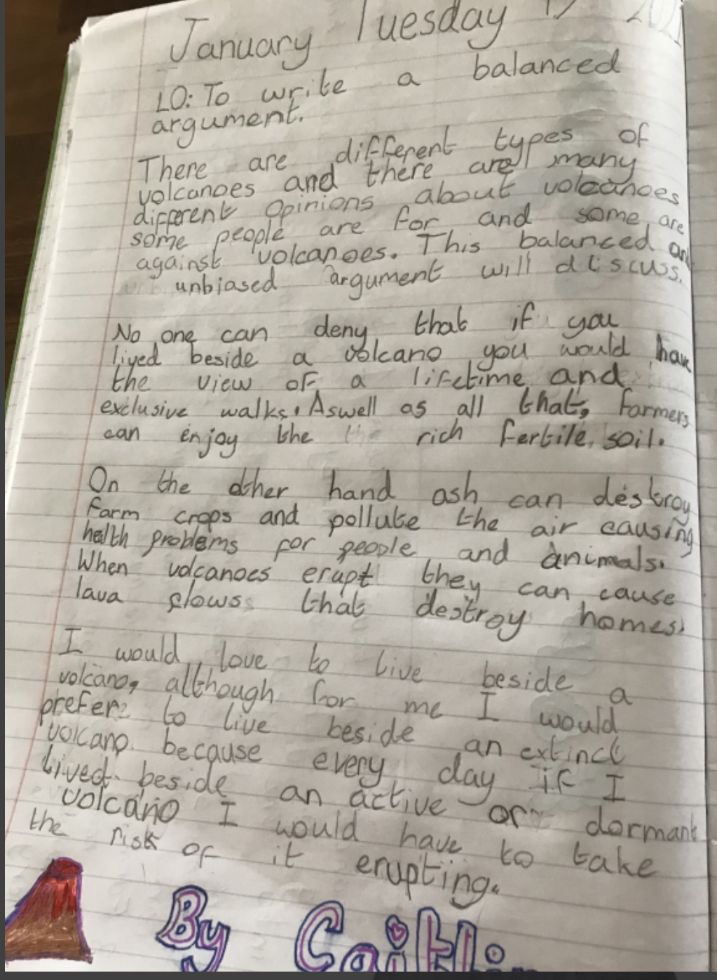 January Tuesday
LO: To write a balanced
argument.
There are different types of
volcanoes and there are many
different opinions about volcanoes
some people are for and some are
against volcanoes. This balanced an
unbiased argument will discuss.
No one can deny that if you
lived beside a volcano you would have
the view of a lifetime and
exclusive walks. Aswell as all that, farmers
can enjoy the rich fertile, soil.
On the other hand ash can destroy
farm crops and pollute the air causing
health problems for people and animals.
When volcanoes erupt they can cause
lava flows that destroy homes.
I would love to live beside a
volcano, although for me I would
prefer to live beside an extinct
volcano because every day if I
lived beside an active or dormant
volcano I would have to take
the risk of it erupting.
By Caitlin